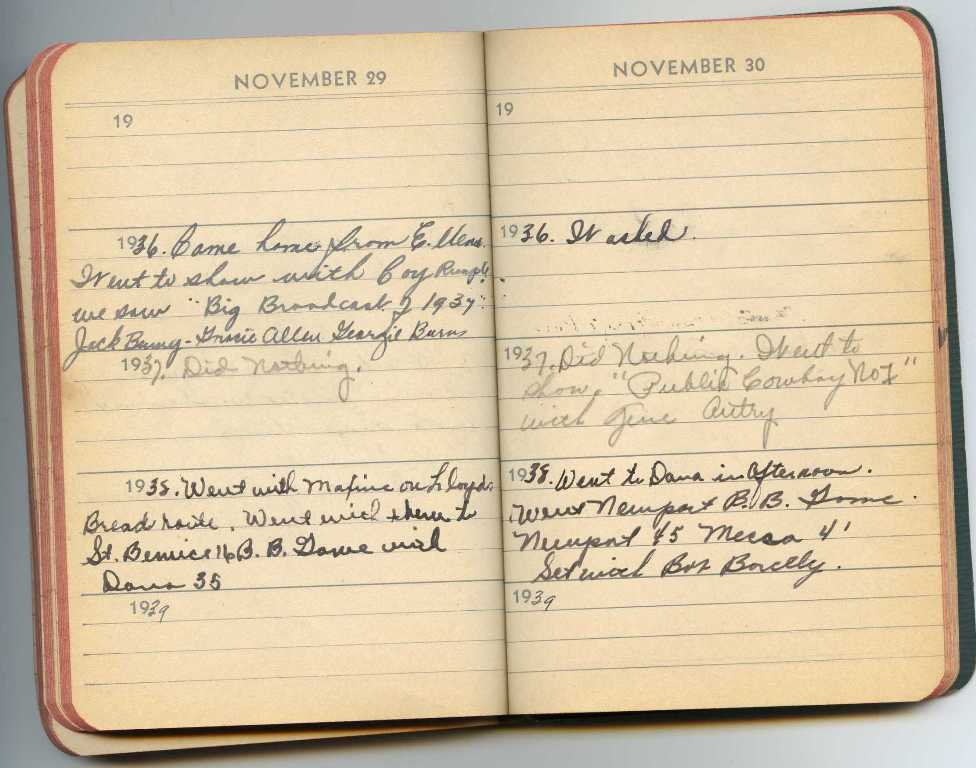 NOVEMBER 29
19
1936. Came home from E.
Went to show with Coy
we saw "Big Broadcast of 1937".
Jack Benny - Gracie Allen Georgie Burns
1937. Did Nothing.
1938. Went with Maxine on Lloyds
Bread route. Went with them to
St. Bernice 16 B. B. Game with
Dana 35
1939
NOVEMBER 30
19
1936. Washed.
1937. Did Nothing. Went to
show, "Public Cowboy No 1"
with Gene Autry
1938. Went to Dana in afternoon.
Went Newport B. B. Game.
Newport 45 Mecca 41
Set with Bob
1939